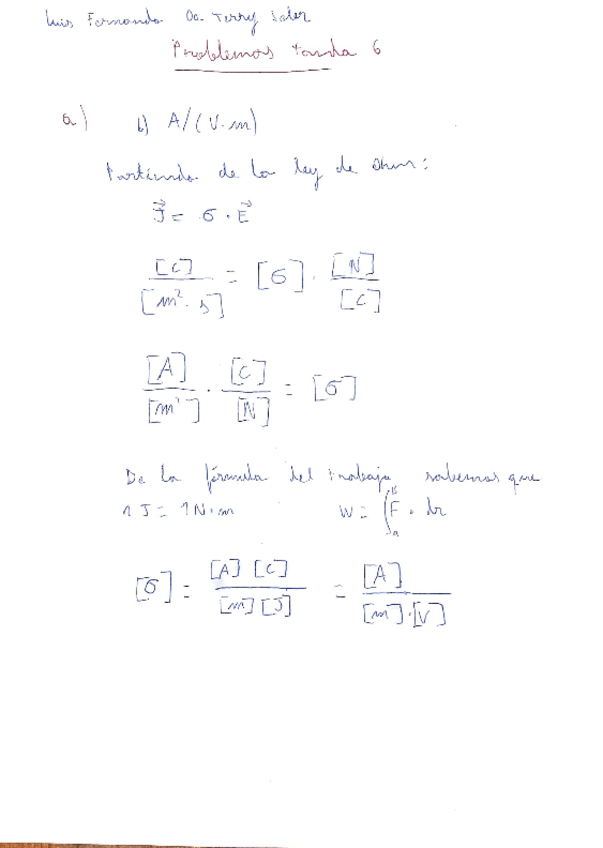 Luis Fernando De Terry
Problemas tanda 6
a) b) A/(V·m)
Partiendo de la ley de Ohm:
J⃗ = σ · E⃗
[C]/[m²·s] = [σ] · [N]/[C]
[A]/[m²] · [C]/[N] = [σ]
De la fórmula del trabajo sabemos que
1 J = 1 N·m W = ∫ₐᴮ F⃗ · dr
[σ] = [A][C]/[m][J] = [A]/[m]·[V]